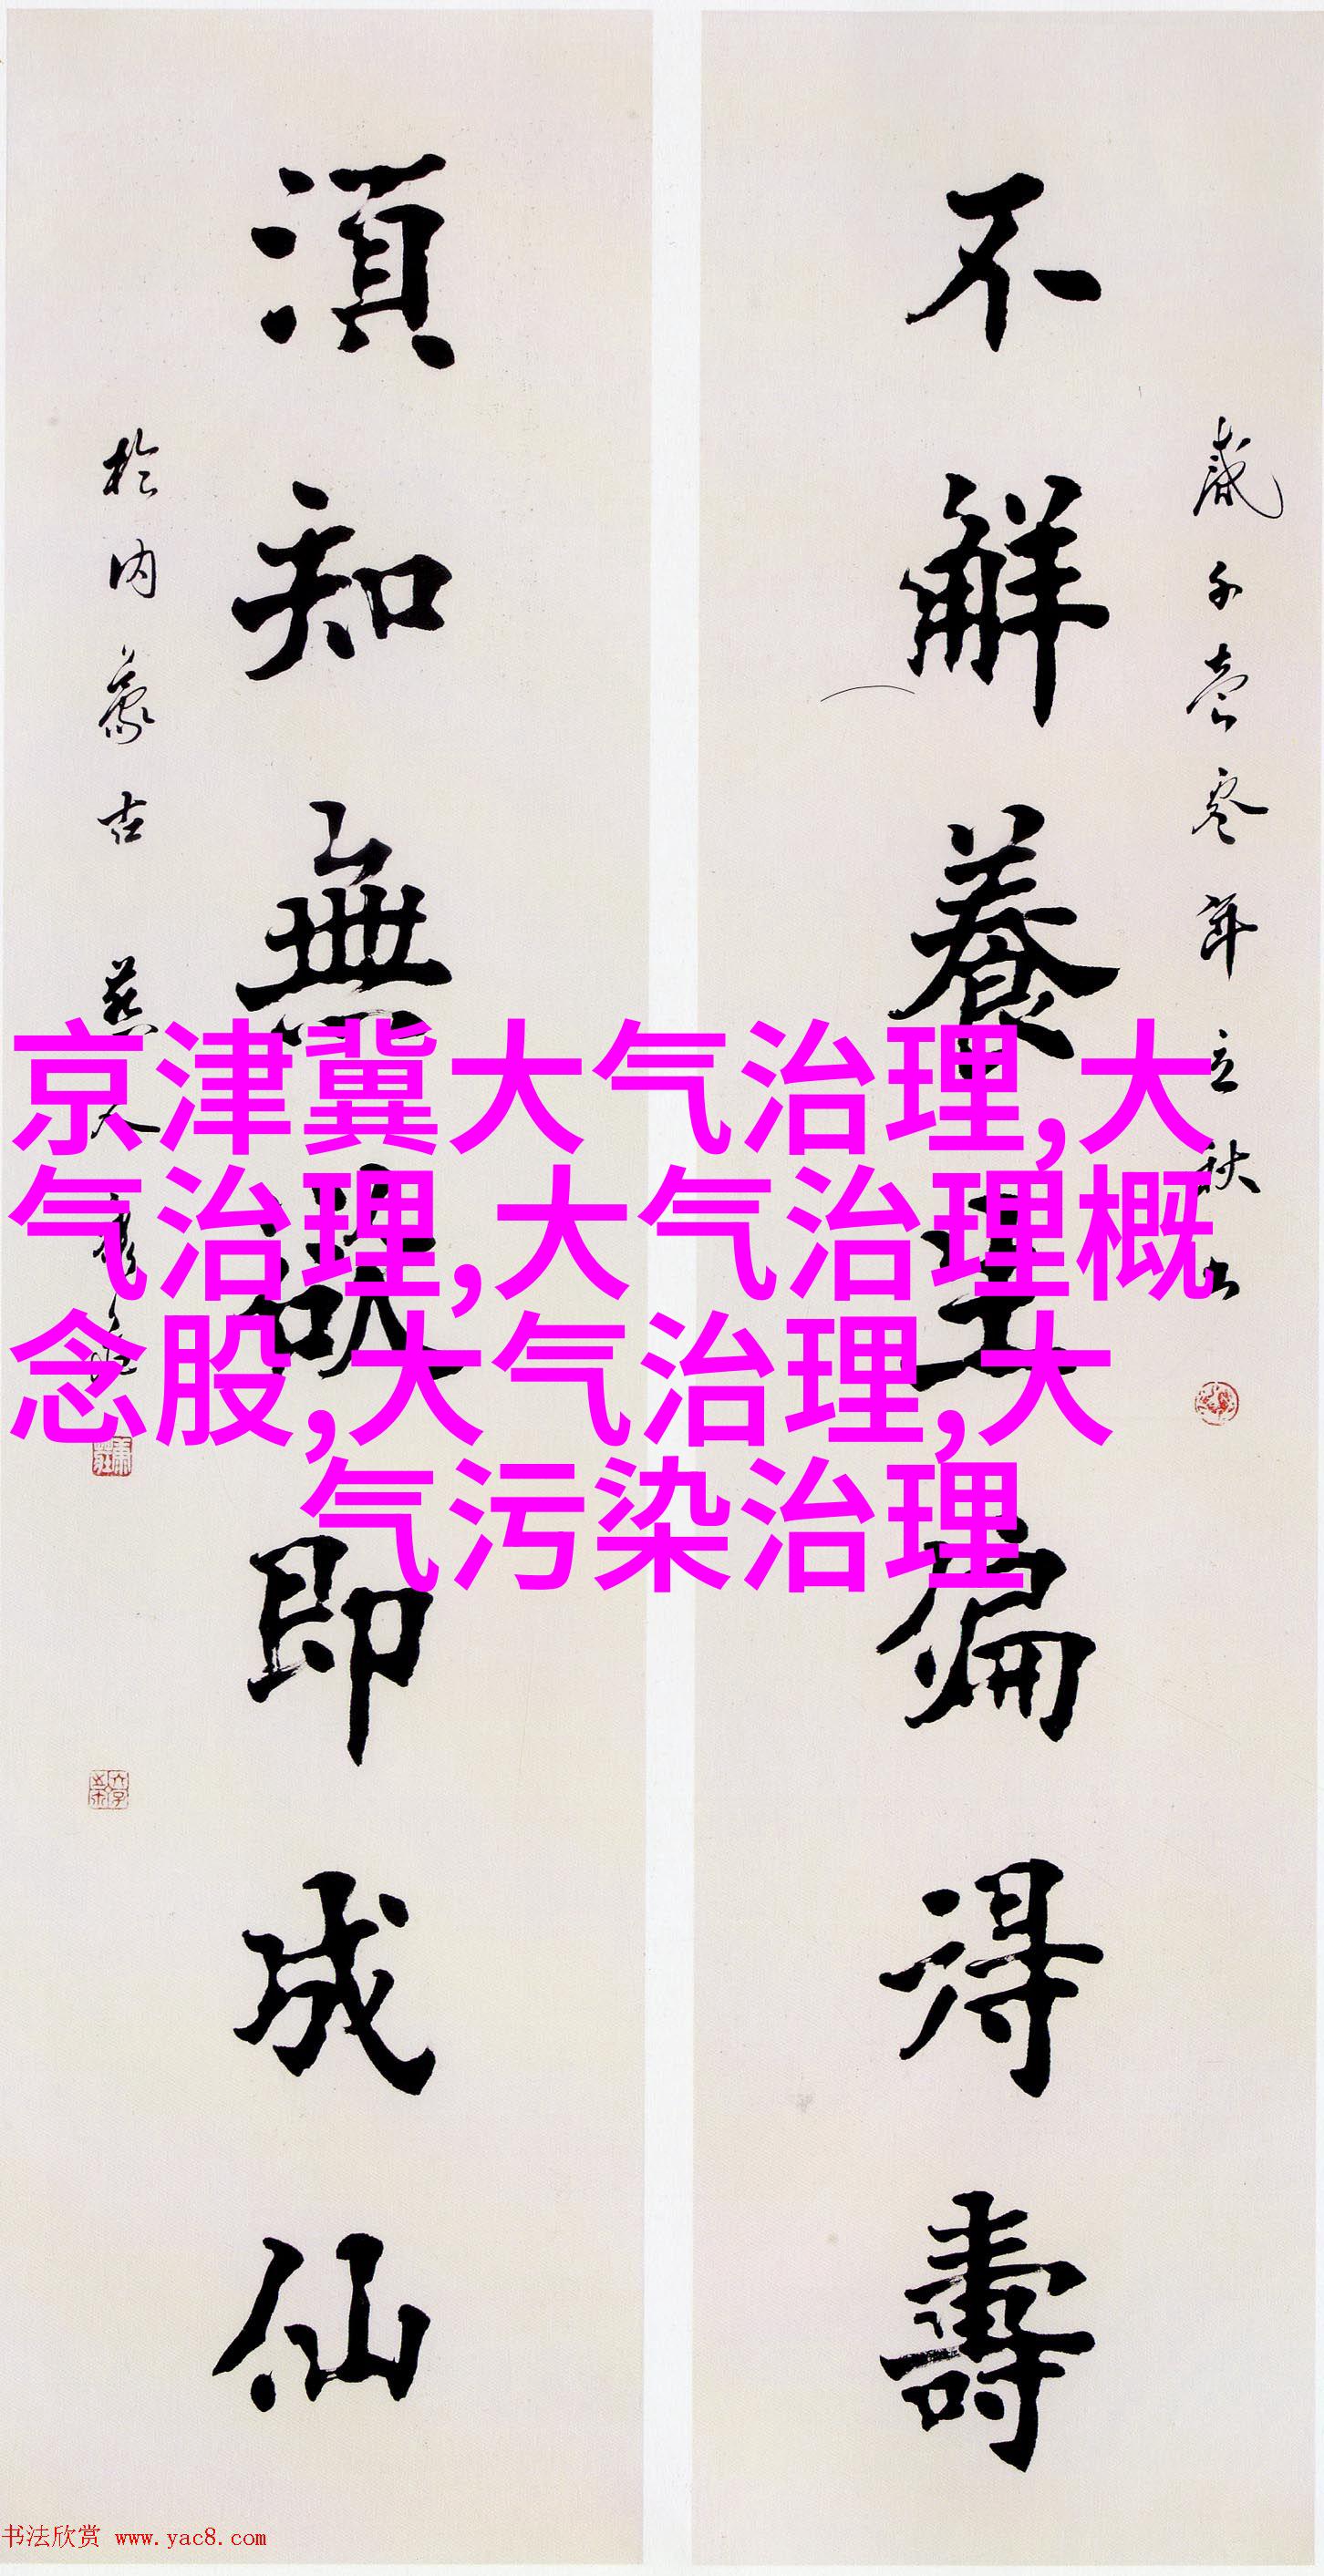 不解養生偏得壽
須知無欲即成仙
於内蒙古
京津冀大气治理,大
气治理,大气治理概
念股,大气治理,大
气污染治理
书法欣赏 www.yac8.com